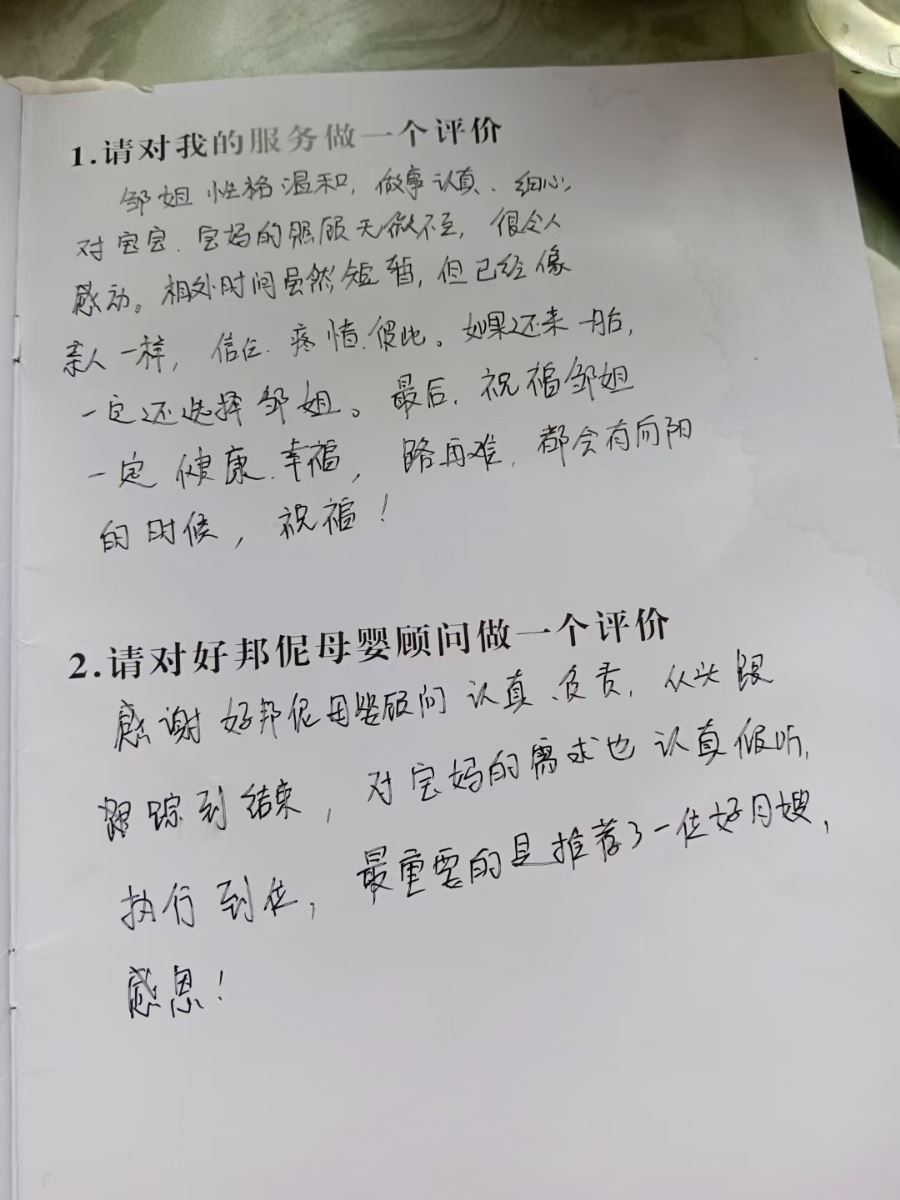 1.请对我的服务做一个评价
邹姐性格温和，做事认真、细心，
对宝宝、宝妈的照顾无微不至，很令人
感动。相处时间虽然短暂，但已经像
亲人一样，信任、疼惜彼此。如果还来一胎，
一定还选择邹姐。最后，祝福邹姐
一定健康、幸福，路再难，都会有向阳
的时候，祝福！
2.请对好邦伲母婴顾问做一个评价
感谢好邦伲母婴顾问认真、负责，从头跟
踪到结束，对宝妈的需求也认真倾听，
执行到位，最重要的是推荐了一位好月嫂，
感恩！